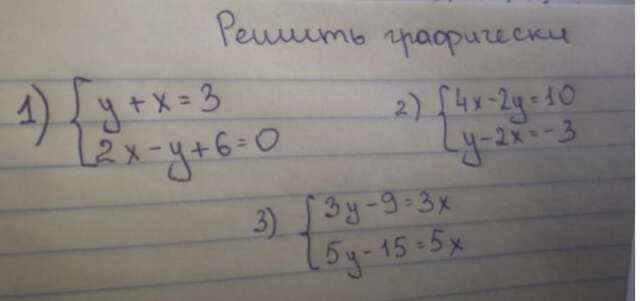 Решить графически
1) { y + x = 3
2x - y + 6 = 0
2) { 4x - 2y = 10
y - 2x = -3
3) { 3y - 9 = 3x
5y - 15 = 5x